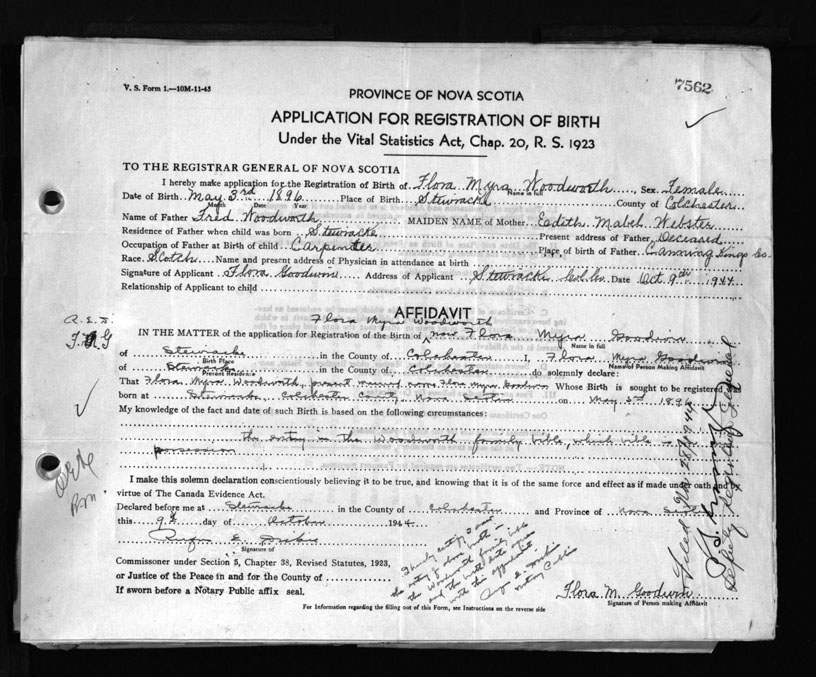 V. S. Form 1.—10M-11-43
7562
PROVINCE OF NOVA SCOTIA
APPLICATION FOR REGISTRATION OF BIRTH
Under the Vital Statistics Act, Chap. 20, R. S. 1923
TO THE REGISTRAR GENERAL OF NOVA SCOTIA
I hereby make application for the Registration of Birth of Flora Myra Woodworth Sex Female
Name in full
Date of Birth May 3rd 1896 Place of Birth Stewiacke County of Colchester
Month Date Year
Name of Father Fred Woodworth MAIDEN NAME of Mother Eadith Mabel Webster
Residence of Father when child was born Stewiacke Present address of Father Deceased
Occupation of Father at Birth of child Carpenter Place of birth of Father Canning Kings Co.
Race Scotch Name and present address of Physician in attendance at birth
Signature of Applicant Flora Goodwin Address of Applicant Stewiacke Col. Co. Date Oct 9th 1944
Relationship of Applicant to child
AFFIDAVIT
Flora Myra Woodworth
IN THE MATTER of the application for Registration of the Birth of now Flora Myra Goodwin
Name in full
of Stewiacke in the County of Colchester I, Flora Myra Goodwin
Birth Place Name of Person Making Affidavit
of Stewiacke in the County of Colchester do solemnly declare:
Present Residence
That Flora Myra Woodworth, present married name Flora Myra Goodwin Whose Birth is sought to be registered was
born at Stewiacke, Colchester County, Nova Scotia on May 3rd 1896
My knowledge of the fact and date of such Birth is based on the following circumstances:
the entry in the Woodworth family bible, which bible is in my
possession
I make this solemn declaration conscientiously believing it to be true, and knowing that it is of the same force and effect as if made under oath and by
virtue of The Canada Evidence Act.
Declared before me at Stewiacke in the County of Colchester and Province of Nova Scotia
this 9th day of October 1944
Signature of
Commissoner under Section 5, Chapter 38, Revised Statutes, 1923,
or Justice of the Peace in and for the County of
If sworn before a Notary Public affix seal.
I hereby certify I saw
the entry of above birth in
the Woodworth family bible
and the birth date agrees
with this affidavit
Notary Public
Flora M. Goodwin
Signature of Person making Affidavit
For Information regarding the filling out of this Form, see Instructions on the reverse side
Deputy Registrar General